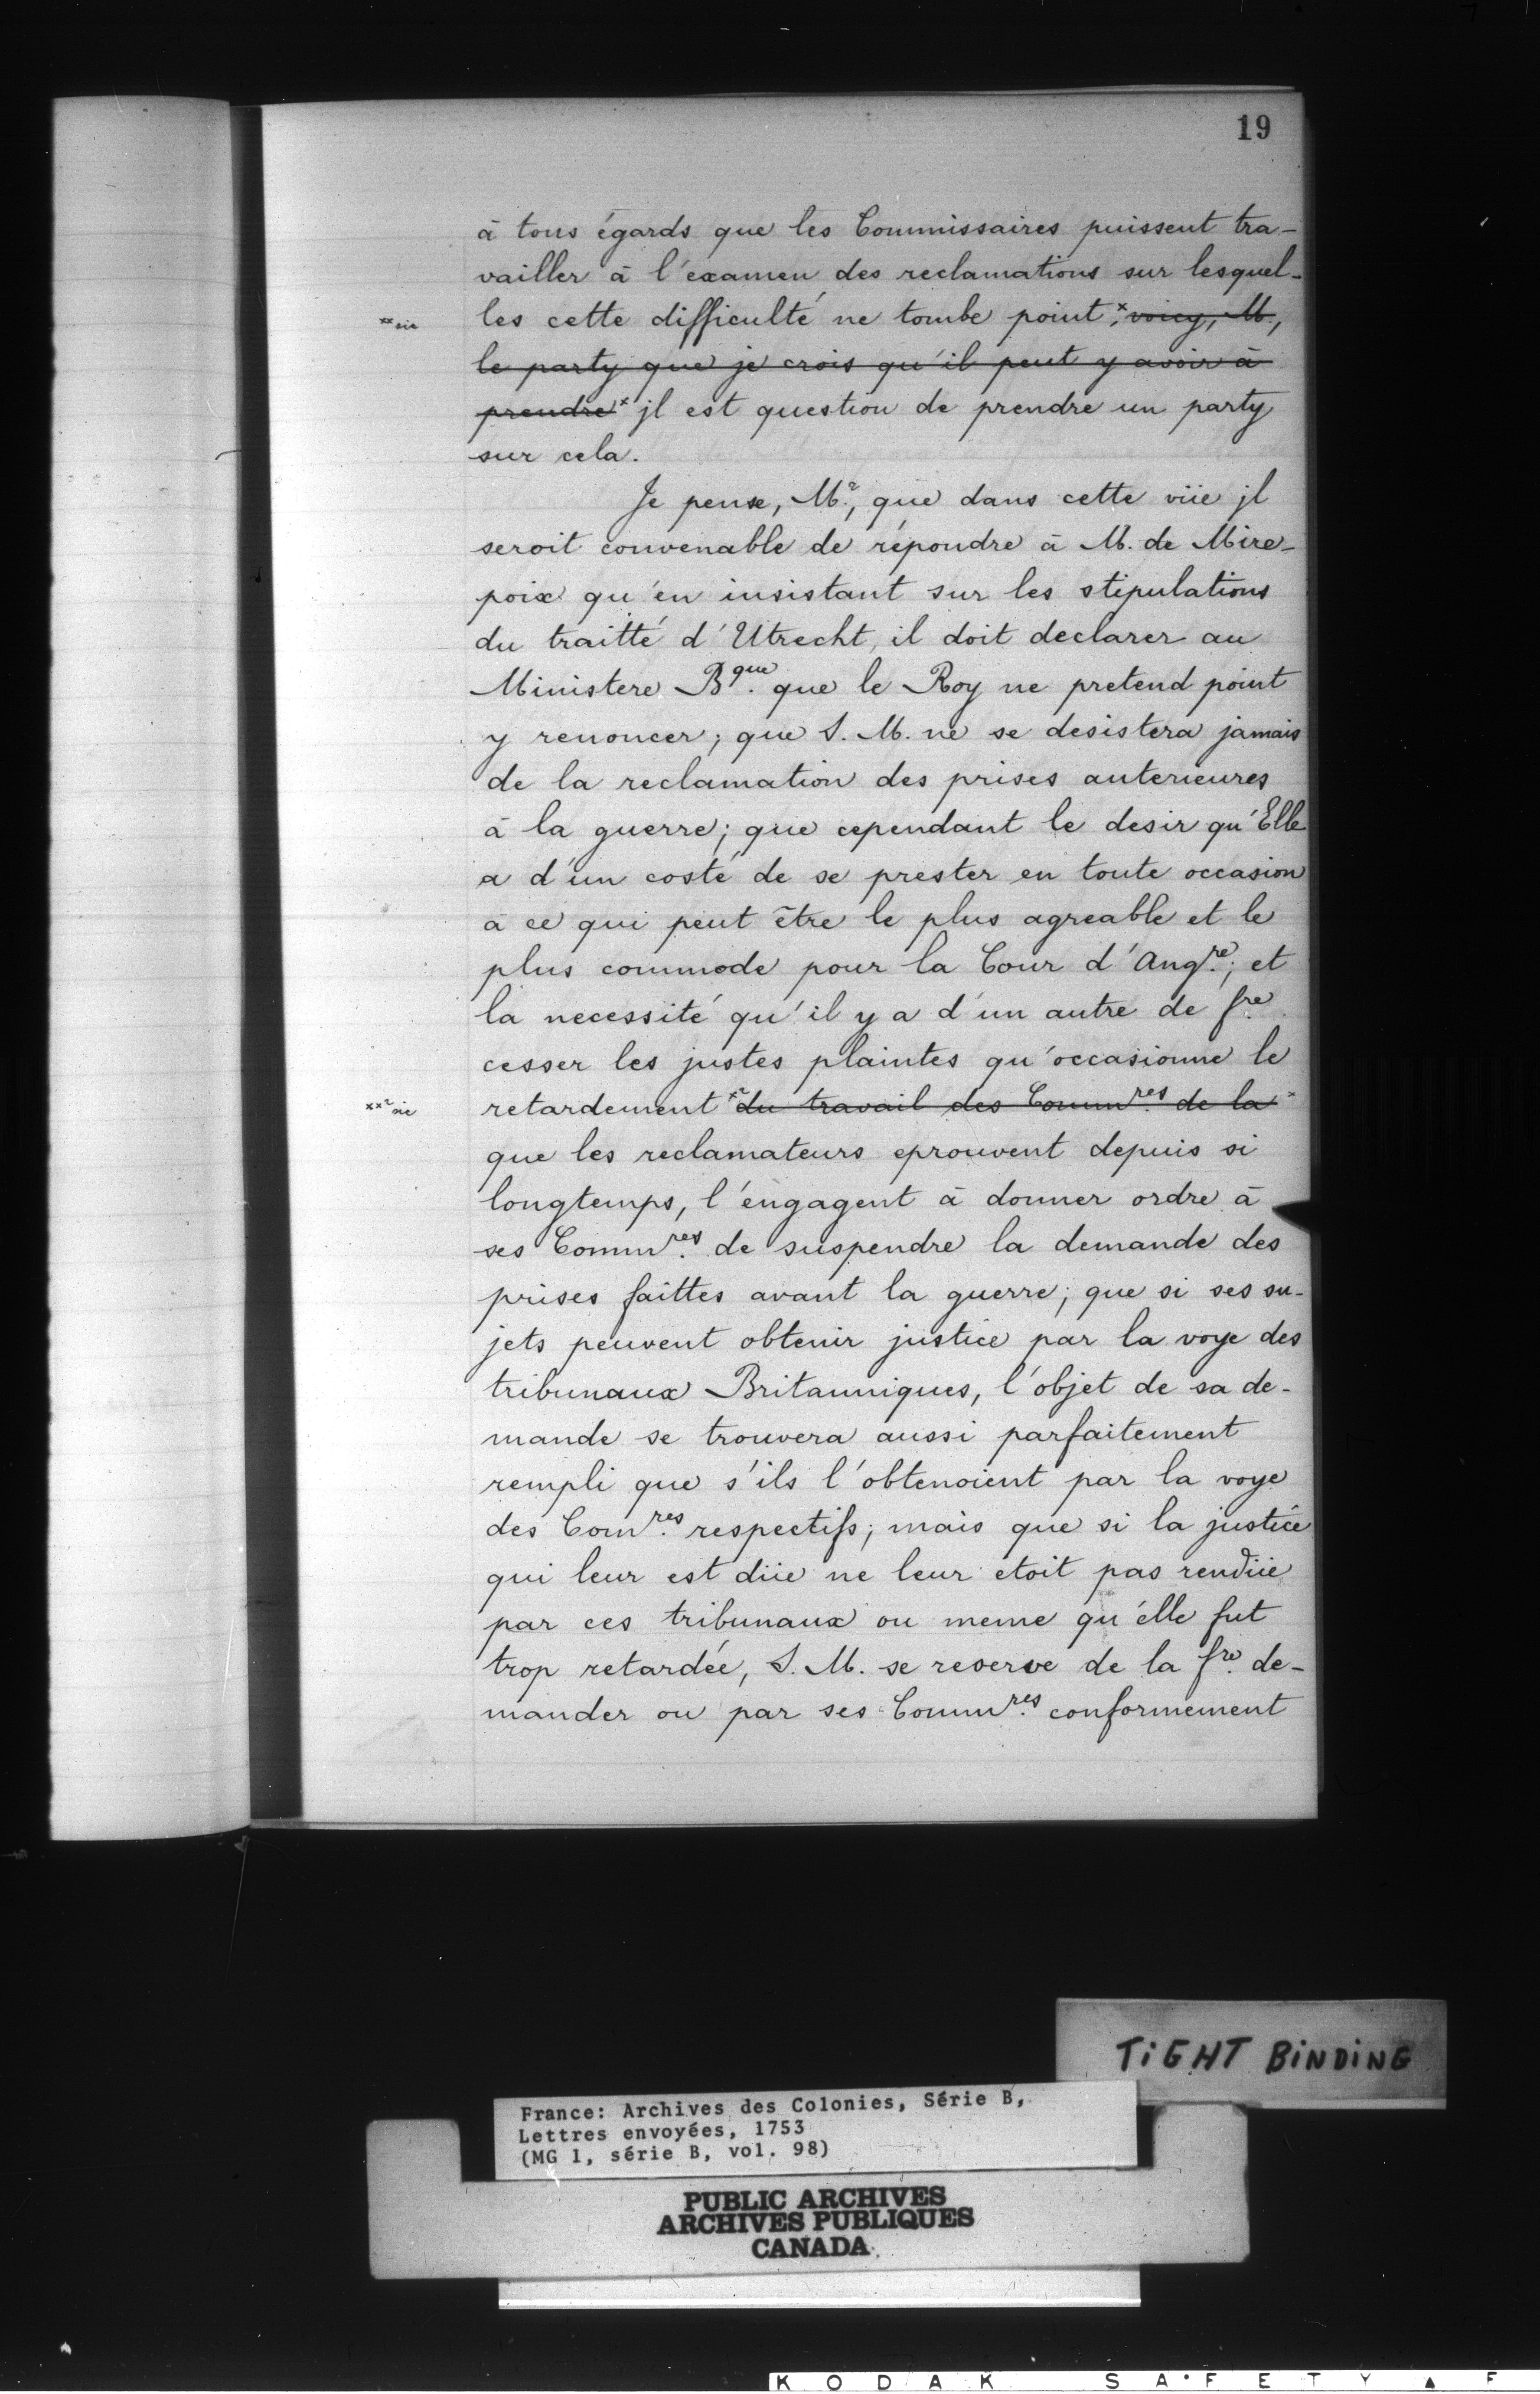 19
à tous égards que les Commissaires puissent tra-
vailler à l'examen des reclamations sur lesquel-
xx sic
les cette difficulté ne tombe point, x voicy, M.,
le party que je crois qu'il peut y avoir à
prendre x jl est question de prendre un party
sur cela.
Je pense, Mr., que dans cette vüe jl
seroit convenable de répondre à M. de Mire-
poix qu'en insistant sur les stipulations
du traitté d'Utrecht, il doit declarer au
Ministere Bque. que le Roy ne pretend point
y renoncer; que S. M. ne se desistera jamais
de la reclamation des prises anterieures
à la guerre; que cependant le desir qu'Elle
a d'un costé de se prester en toute occasion
à ce qui peut être le plus agreable et le
plus commode pour la Cour d'Angre.; et
la necessité qu'il y a d'un autre de fre.
cesser les justes plaintes qu'occasionne le
xx2 sic
retardement x2 du travail des Commres. de la x
que les reclamateurs eprouvent depuis si
longtemps, l'engagent à donner ordre à
ses Commres. de suspendre la demande des
prises faittes avant la guerre; que si ses su-
jets peuvent obtenir justice par la voye des
tribunaux Britanniques, l'objet de sa de-
mande se trouvera aussi parfaitement
rempli que s'ils l'obtenoient par la voye
des Comres. respectifs; mais que si la justice
qui leur est düe ne leur etoit pas rendüe
par ces tribunaux ou meme qu'elle fut
trop retardée, S. M. se reserve de la fre. de-
mander ou par ses Commres. conformement
TIGHT BINDING
France: Archives des Colonies, Série B,
Lettres envoyées, 1753
(MG 1, série B, vol. 98)
PUBLIC ARCHIVES
ARCHIVES PUBLIQUES
CANADA
KODAK SAFETY F